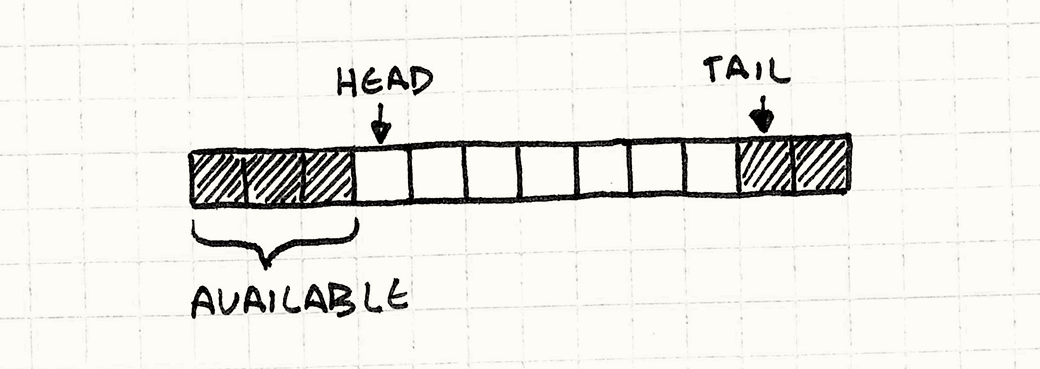 HEAD
TAIL
AVAILABLE